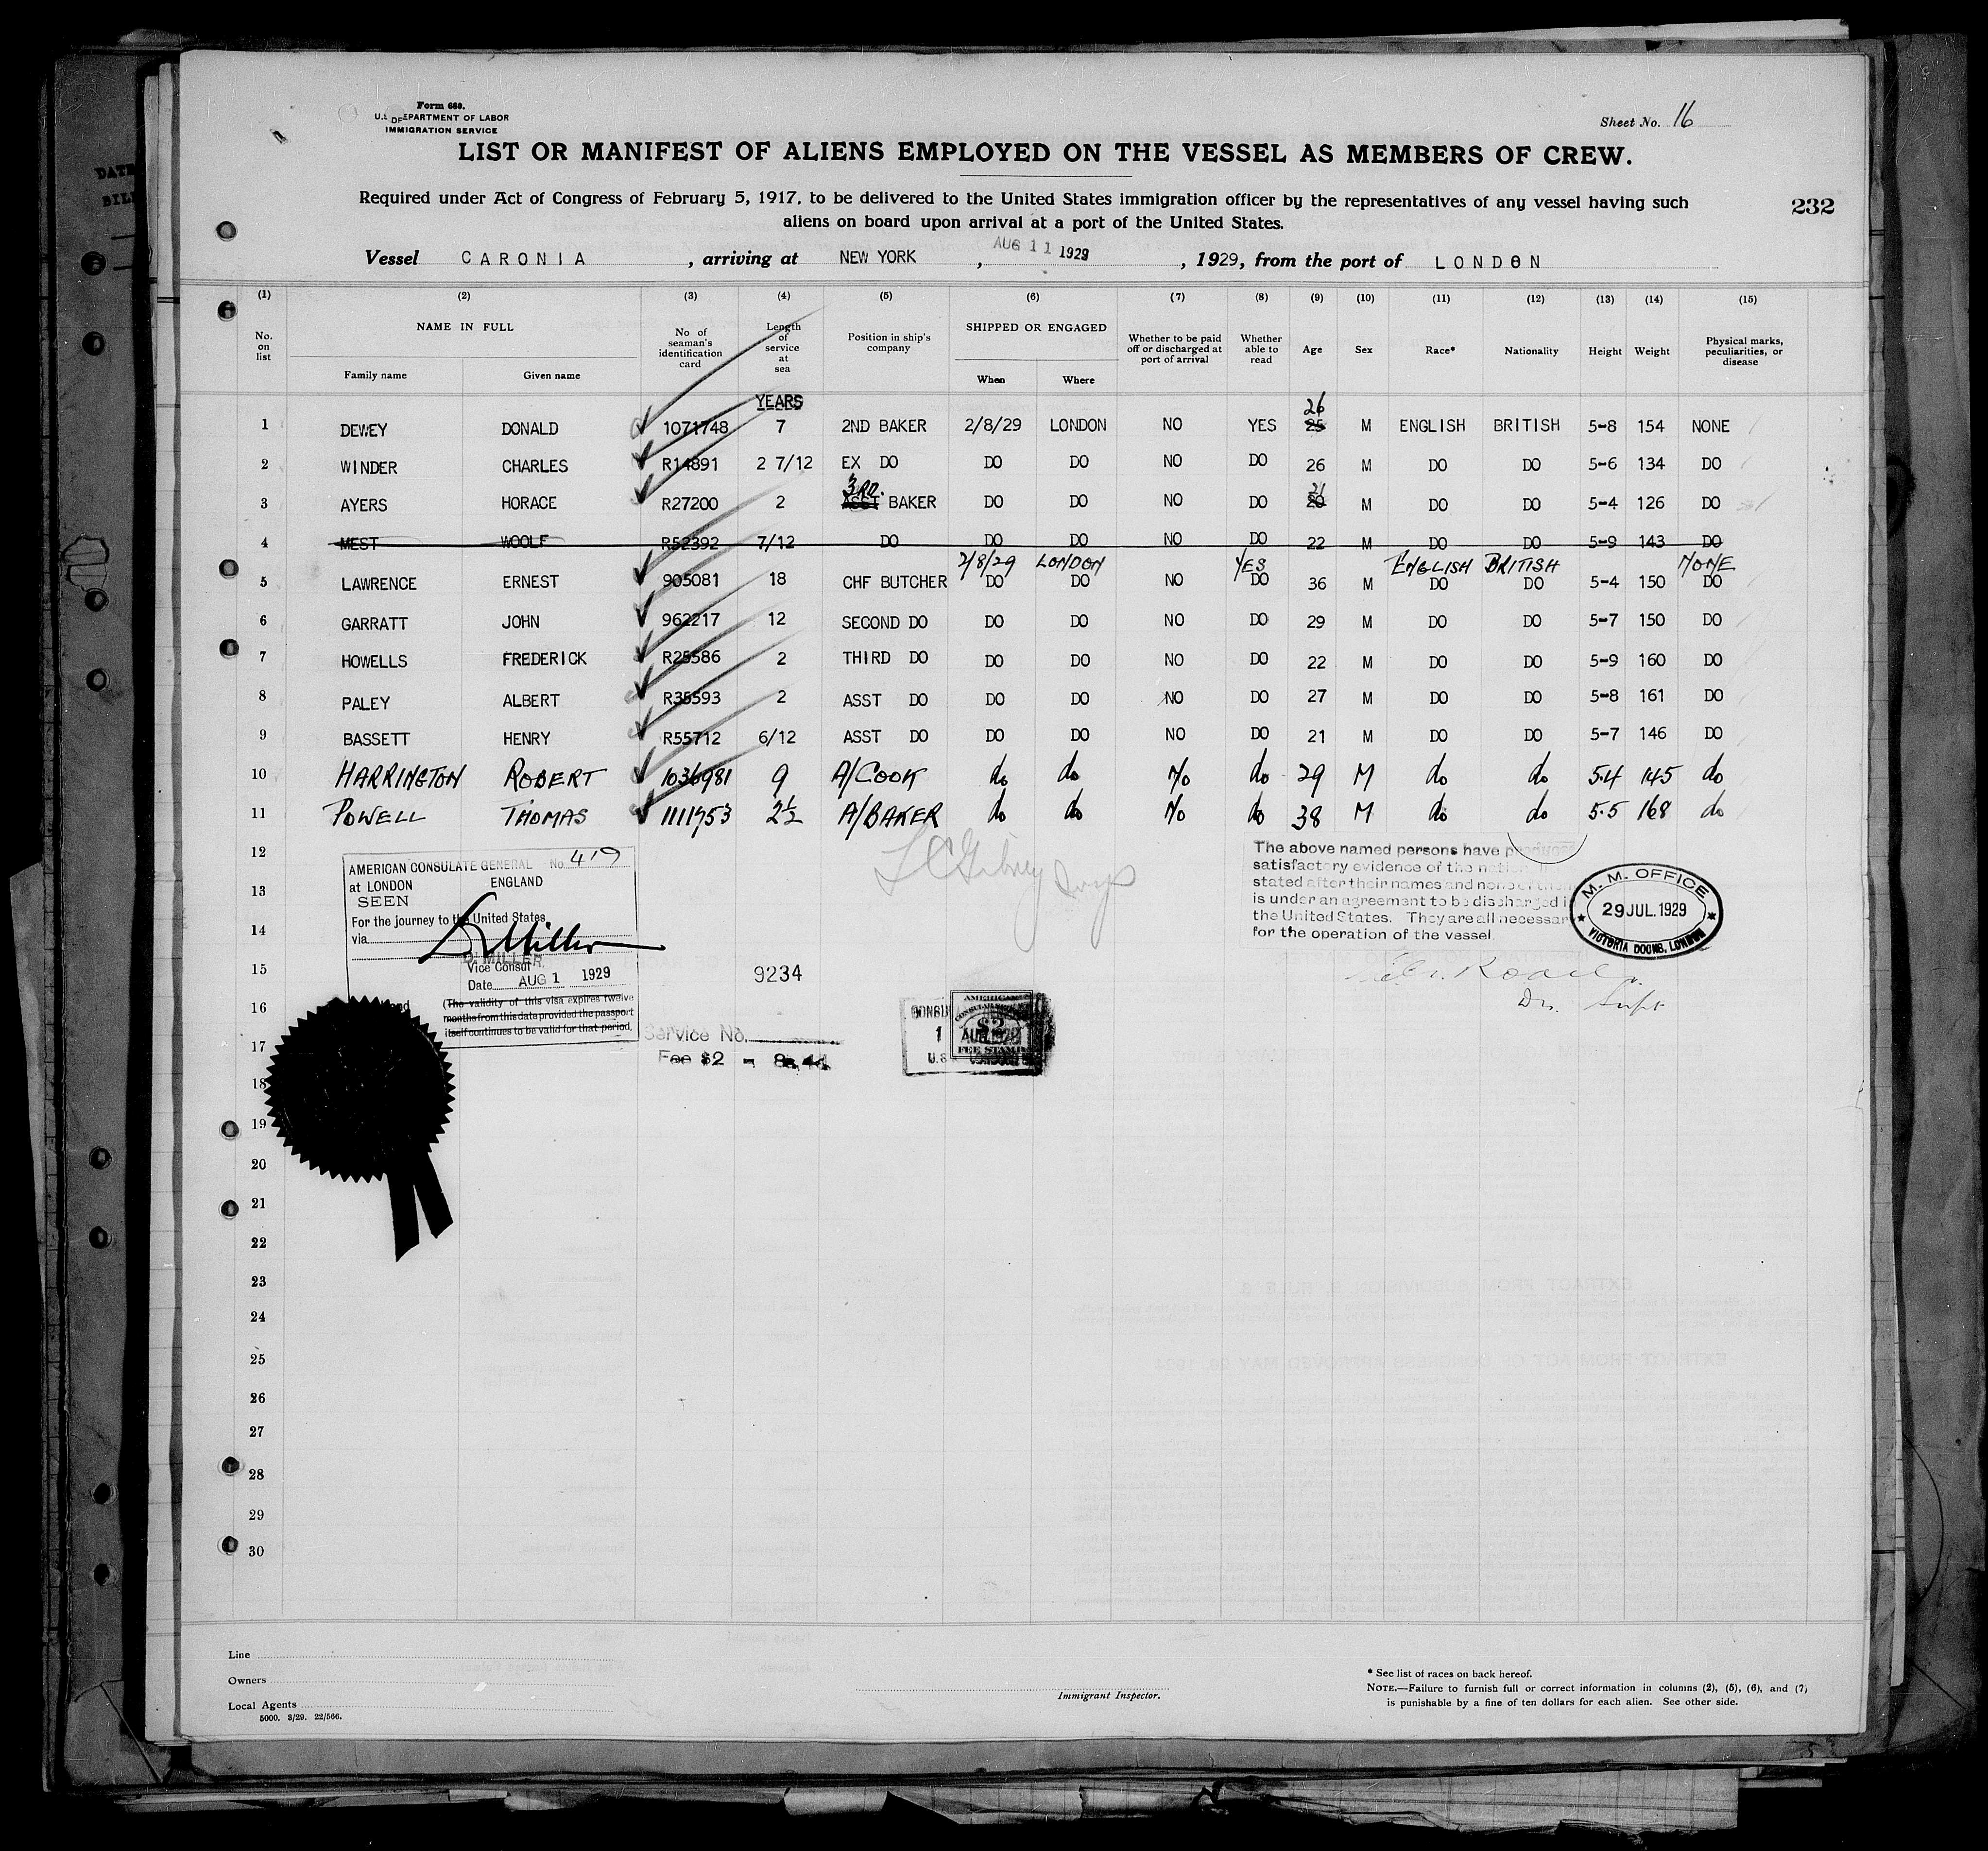 Form 680.
U.S. DEPARTMENT OF LABOR
IMMIGRATION SERVICE
Sheet No. 16
LIST OR MANIFEST OF ALIENS EMPLOYED ON THE VESSEL AS MEMBERS OF CREW.
Required under Act of Congress of February 5, 1917, to be delivered to the United States immigration officer by the representatives of any vessel having such
aliens on board upon arrival at a port of the United States.
232
Vessel CARONIA, arriving at NEW YORK, AUG 11 1929, 1929, from the port of LONDON
(1) (2) (3) (4) (5) (6) (7) (8) (9) (10) (11) (12) (13) (14) (15)
No. on list NAME IN FULL Family name Given name No of seaman's identification card Length of service at sea Position in ship's company SHIPPED OR ENGAGED When Where Whether to be paid off or discharged at port of arrival Whether able to read Age Sex Race* Nationality Height Weight Physical marks, peculiarities, or disease
YEARS
1 DEWEY DONALD 1071748 7 2ND BAKER 2/8/29 LONDON NO YES 25 26 M ENGLISH BRITISH 5-8 154 NONE
2 WINDER CHARLES R14891 2 7/12 EX DO DO DO NO DO 26 M DO DO 5-6 134 DO
3 AYERS HORACE R27200 2 ASST 3RD. BAKER DO DO NO DO 20 21 M DO DO 5-4 126 DO
4 MEST WOOLF R52392 7/12 DO DO DO NO DO 22 M DO DO 5-9 143 DO
2/8/29 LONDON YES ENGLISH BRITISH NONE
5 LAWRENCE ERNEST 905081 18 CHF BUTCHER DO DO NO DO 36 M DO DO 5-4 150 DO
6 GARRATT JOHN 962217 12 SECOND DO DO DO NO DO 29 M DO DO 5-7 150 DO
7 HOWELLS FREDERICK R25586 2 THIRD DO DO DO NO DO 22 M DO DO 5-9 160 DO
8 PALEY ALBERT R35593 2 ASST DO DO DO NO DO 27 M DO DO 5-8 161 DO
9 BASSETT HENRY R55712 6/12 ASST DO DO DO NO DO 21 M DO DO 5-7 146 DO
10 HARRINGTON ROBERT 1036981 9 A/COOK do do No do 29 M do do 5.4 145 do
11 POWELL THOMAS 1111753 2½ A/BAKER do do No do 38 M do do 5.5 168 do
12
13
14
15
16
17
18
19
20
21
22
23
24
25
26
27
28
29
30
AMERICAN CONSULATE GENERAL No. 419
at LONDON ENGLAND
SEEN
For the journey to the United States
via
D. MILLER
Vice Consul
Date AUG 1 1929
(The validity of this visa expires twelve
months from this date provided the passport
itself continues to be valid for that period.
9234
Service No.
Fee $2
AMERICAN
CONSULAR
$2
FEE STAMP
The above named persons have
satisfactory evidence of the
stated after their names and none of
is under an agreement to be discharged
the United States. They are all necessary
for the operation of the vessel.
M. M. OFFICE
29 JUL. 1929
VICTORIA DOCKS, LONDON
Line
Owners
Local Agents
5000. 3/29. 22/566.
Immigrant Inspector.
* See list of races on back hereof.
NOTE.—Failure to furnish full or correct information in columns (2), (5), (6), and (7)
is punishable by a fine of ten dollars for each alien. See other side.